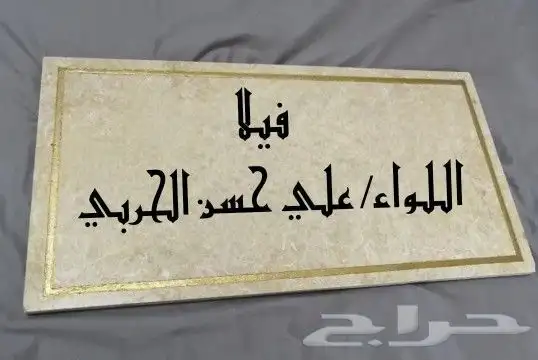 فيلا
اللواء/ علي حسن الحربي
حراج